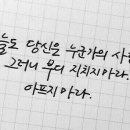 늘도 당신은 누군가의 사
그러니 부디 지치지 마라.
아프지 마라.